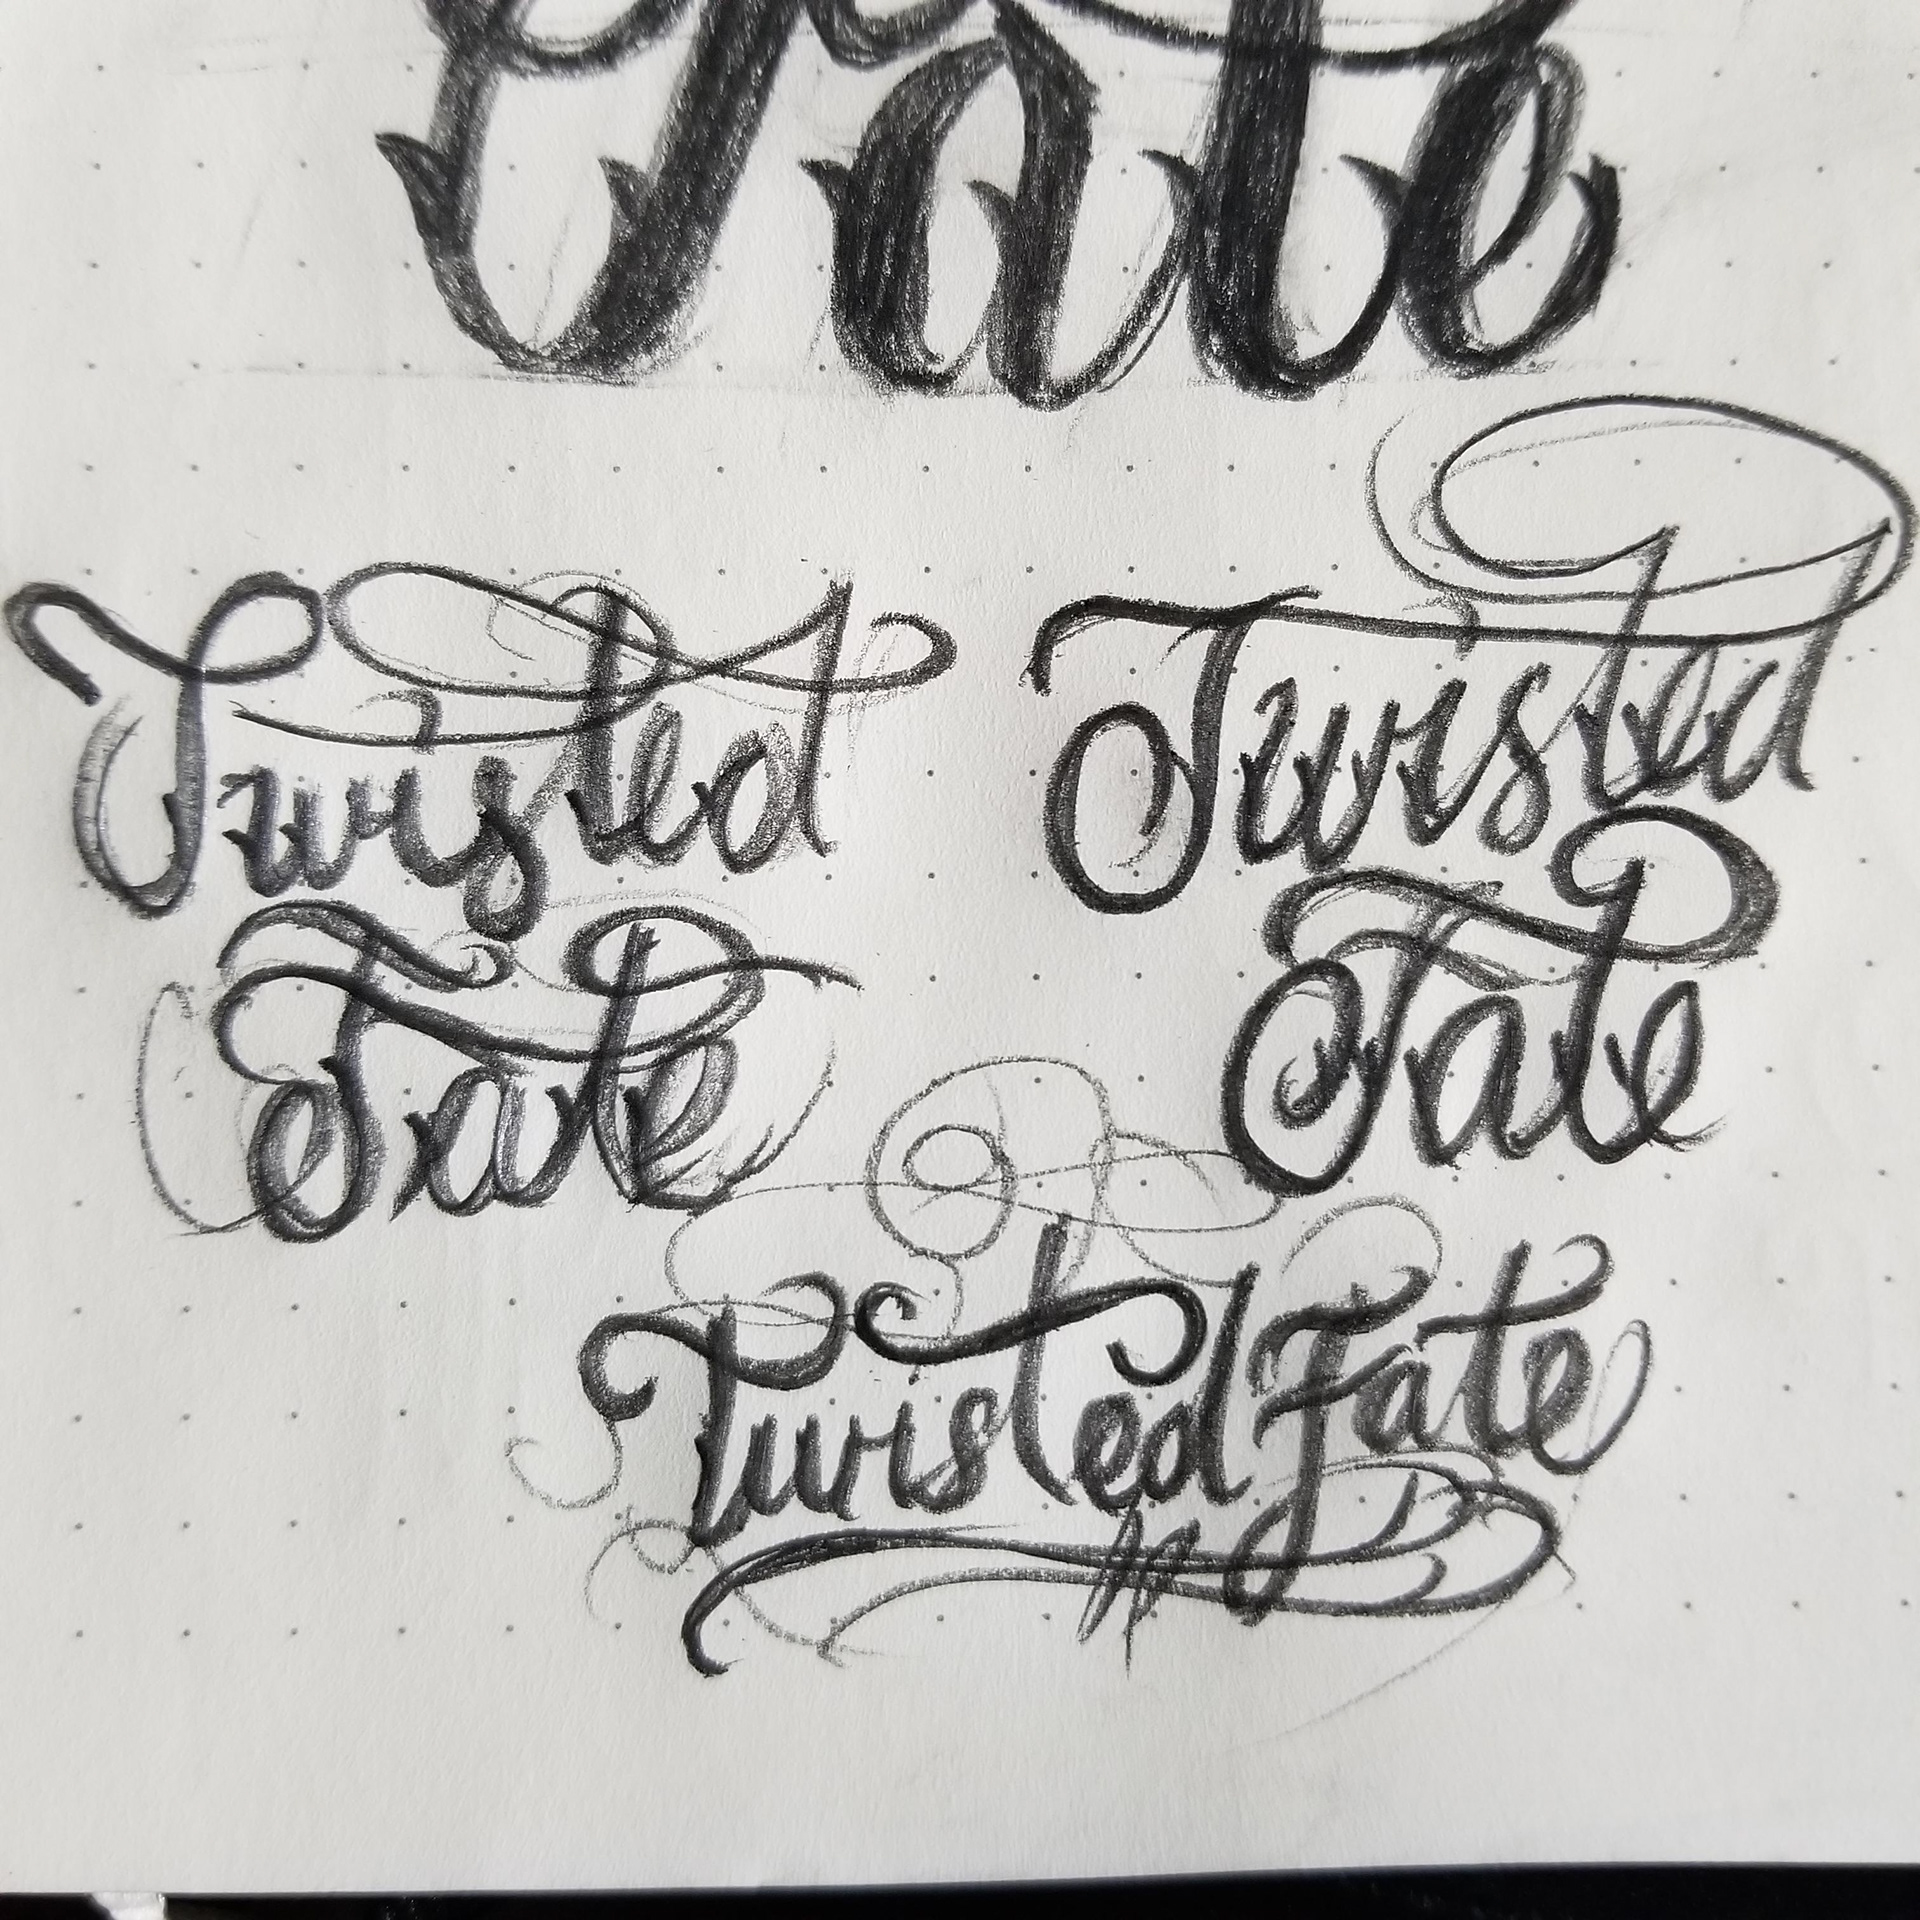 Fate
Twisted
Fate
Twisted
Fate
Twisted Fate